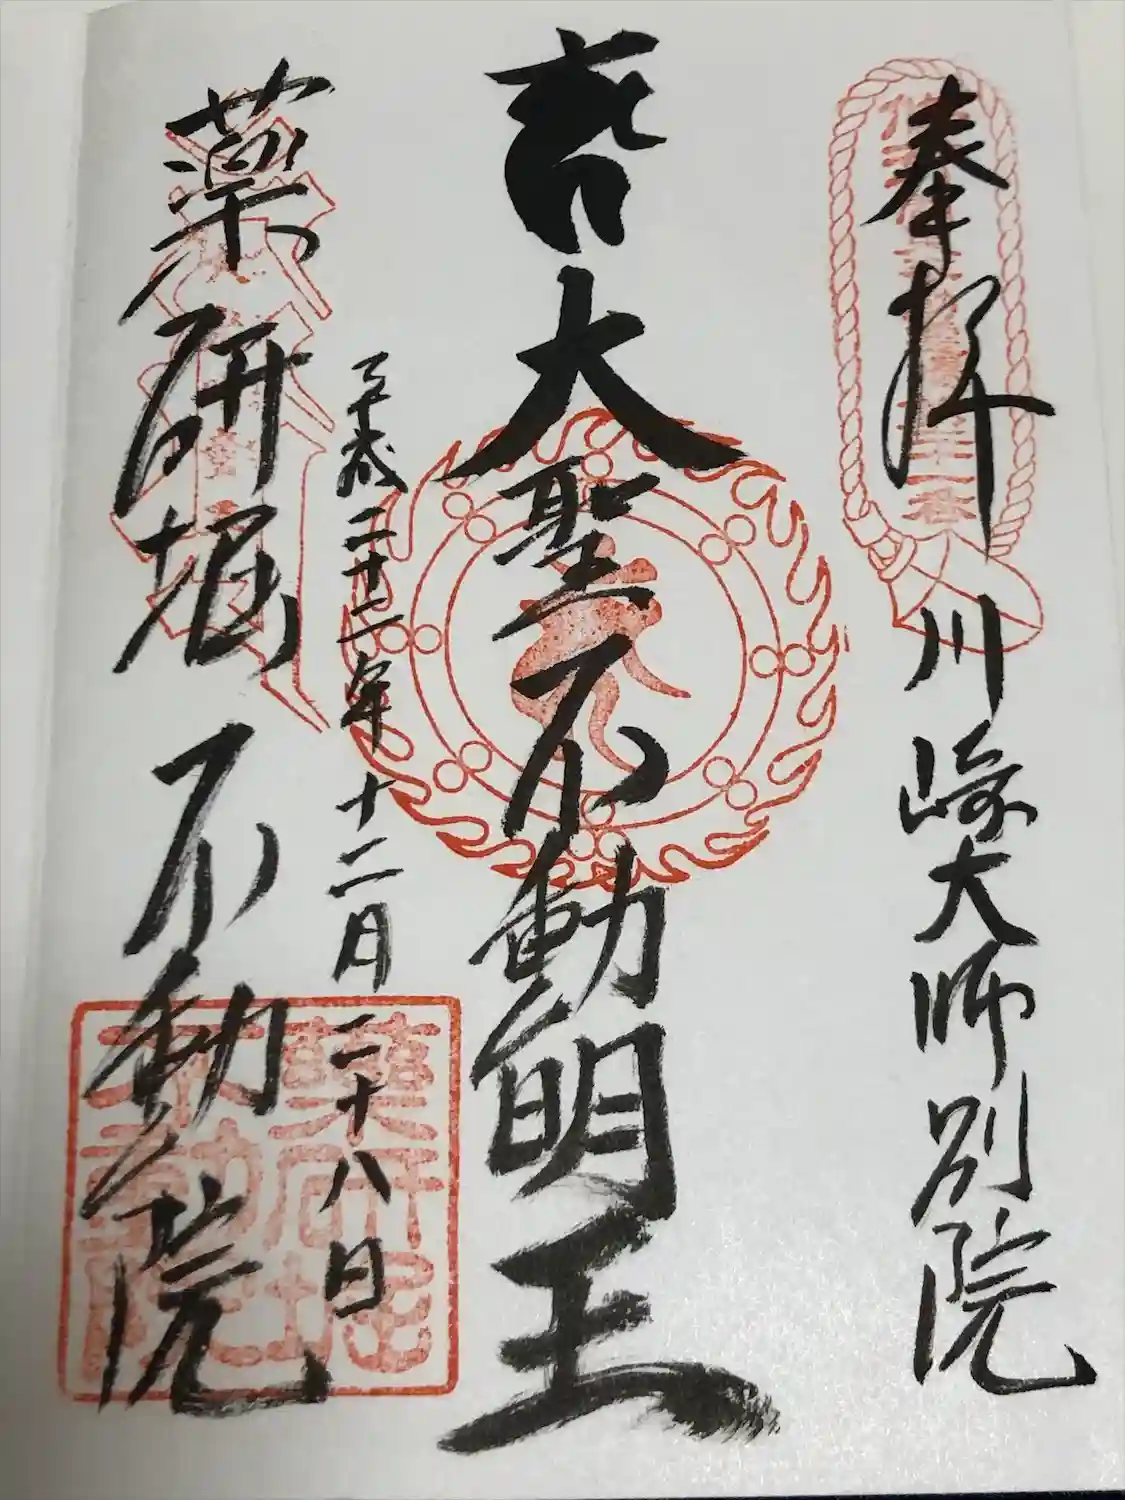 奉拝
川崎大師別院
大聖不動明王
平成二十二年十二月二十八日
薬研堀
不動院
薬研堀
不動院